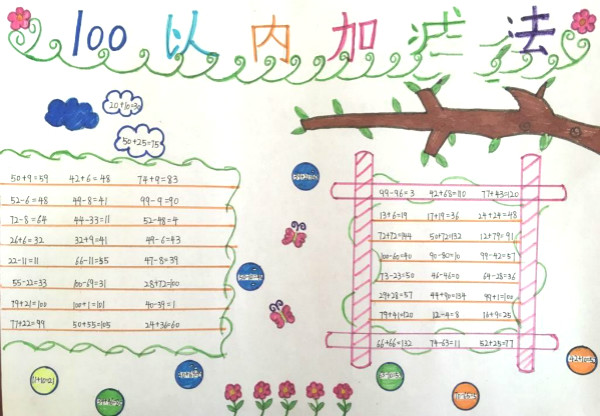 100以内加减法
20+10=30
50+25=75
50+9=59 42+6=48 74+9=83
52-6=48 49-8=41 99-9=90
72-8=64 44-33=11 52-48=4
26+6=32 32+9=41 49-6=43
22-11=11 66-11=55 47-8=39
55-22=33 100-69=31 28+72=100
79+21=100 100+1=101 40-39=1
77+22=99 50+55=105 24+36=60
99-96=3 42+68=110 77+43=120
13+6=19 17+19=36 24+24=48
72+72=144 50+72=132 12+79=91
100-60=40 90-80=10 99-42=57
73-23=50 46-46=0 64-28=36
29+28=57 44+90=134 99+1=100
79+41=120 12-4=8 16+9=25
66+66=132 74-63=11 52+25=77
11+10=21